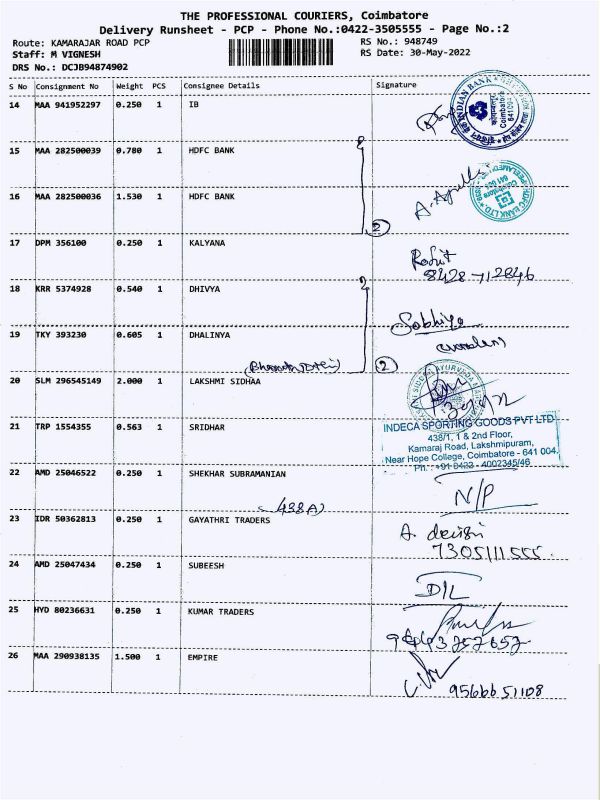 THE PROFESSIONAL COURIERS, Coimbatore
Delivery Runsheet - PCP - Phone No.:0422-3505555 - Page No.:2
Route: KAMARAJAR ROAD PCP
RS No.: 948749
Staff: M VIGNESH
RS Date: 30-May-2022
DRS No.: DCJB94874902
S No Consignment No Weight PCS Consignee Details Signature
14 MAA 941952297 0.250 1 IB
INDIAN BANK
Coimbatore
15 MAA 282500039 0.780 1 HDFC BANK
16 MAA 282500036 1.530 1 HDFC BANK
HDFC BANK LTD.
Coimbatore
2
17 DPM 356100 0.250 1 KALYANA
Rohit
8428-712846
18 KRR 5374928 0.540 1 DHIVYA
Sobhiya
(warden)
19 TKY 393230 0.605 1 DHALINYA
2
20 SLM 296545149 2.000 1 LAKSHMI SIDHAA
21 TRP 1554355 0.563 1 SRIDHAR
INDECA SPORTING GOODS PVT LTD
438/1, 1 & 2nd Floor,
Kamaraj Road, Lakshmipuram,
Near Hope College, Coimbatore - 641 004.
Ph.: +91 0422 - 4002345/46
22 AMD 25046522 0.250 1 SHEKHAR SUBRAMANIAN
N/P
438A)
23 IDR 50362813 0.250 1 GAYATHRI TRADERS
7305111555
24 AMD 25047434 0.250 1 SUBEESH
D/L
25 HYD 80236631 0.250 1 KUMAR TRADERS
26 MAA 290938135 1.500 1 EMPIRE
9566651108